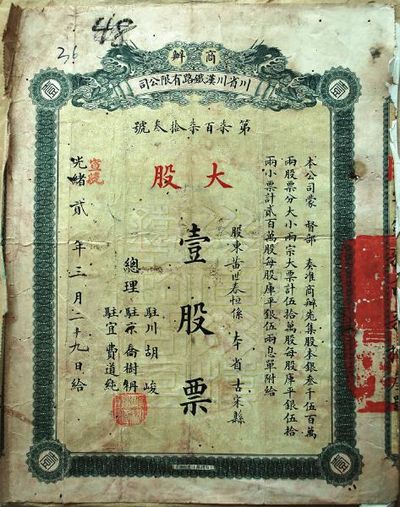 48
36
商辦
川省川漢鐵路有限公司
第柒百柒拾叁號
大股
本公司蒙 督部 奏准商辦先集股本銀叁千伍百萬
兩股票分大小兩宗大票計伍拾萬股每股庫平銀伍拾
兩小票計貳百萬股每股庫平銀伍兩息單附給
股東黃世泰恒係 本省古宋縣
壹股票
總理
駐川胡峻
駐京喬樹枏
駐宜費道純
宣統
光緒貳年三月二十九日給